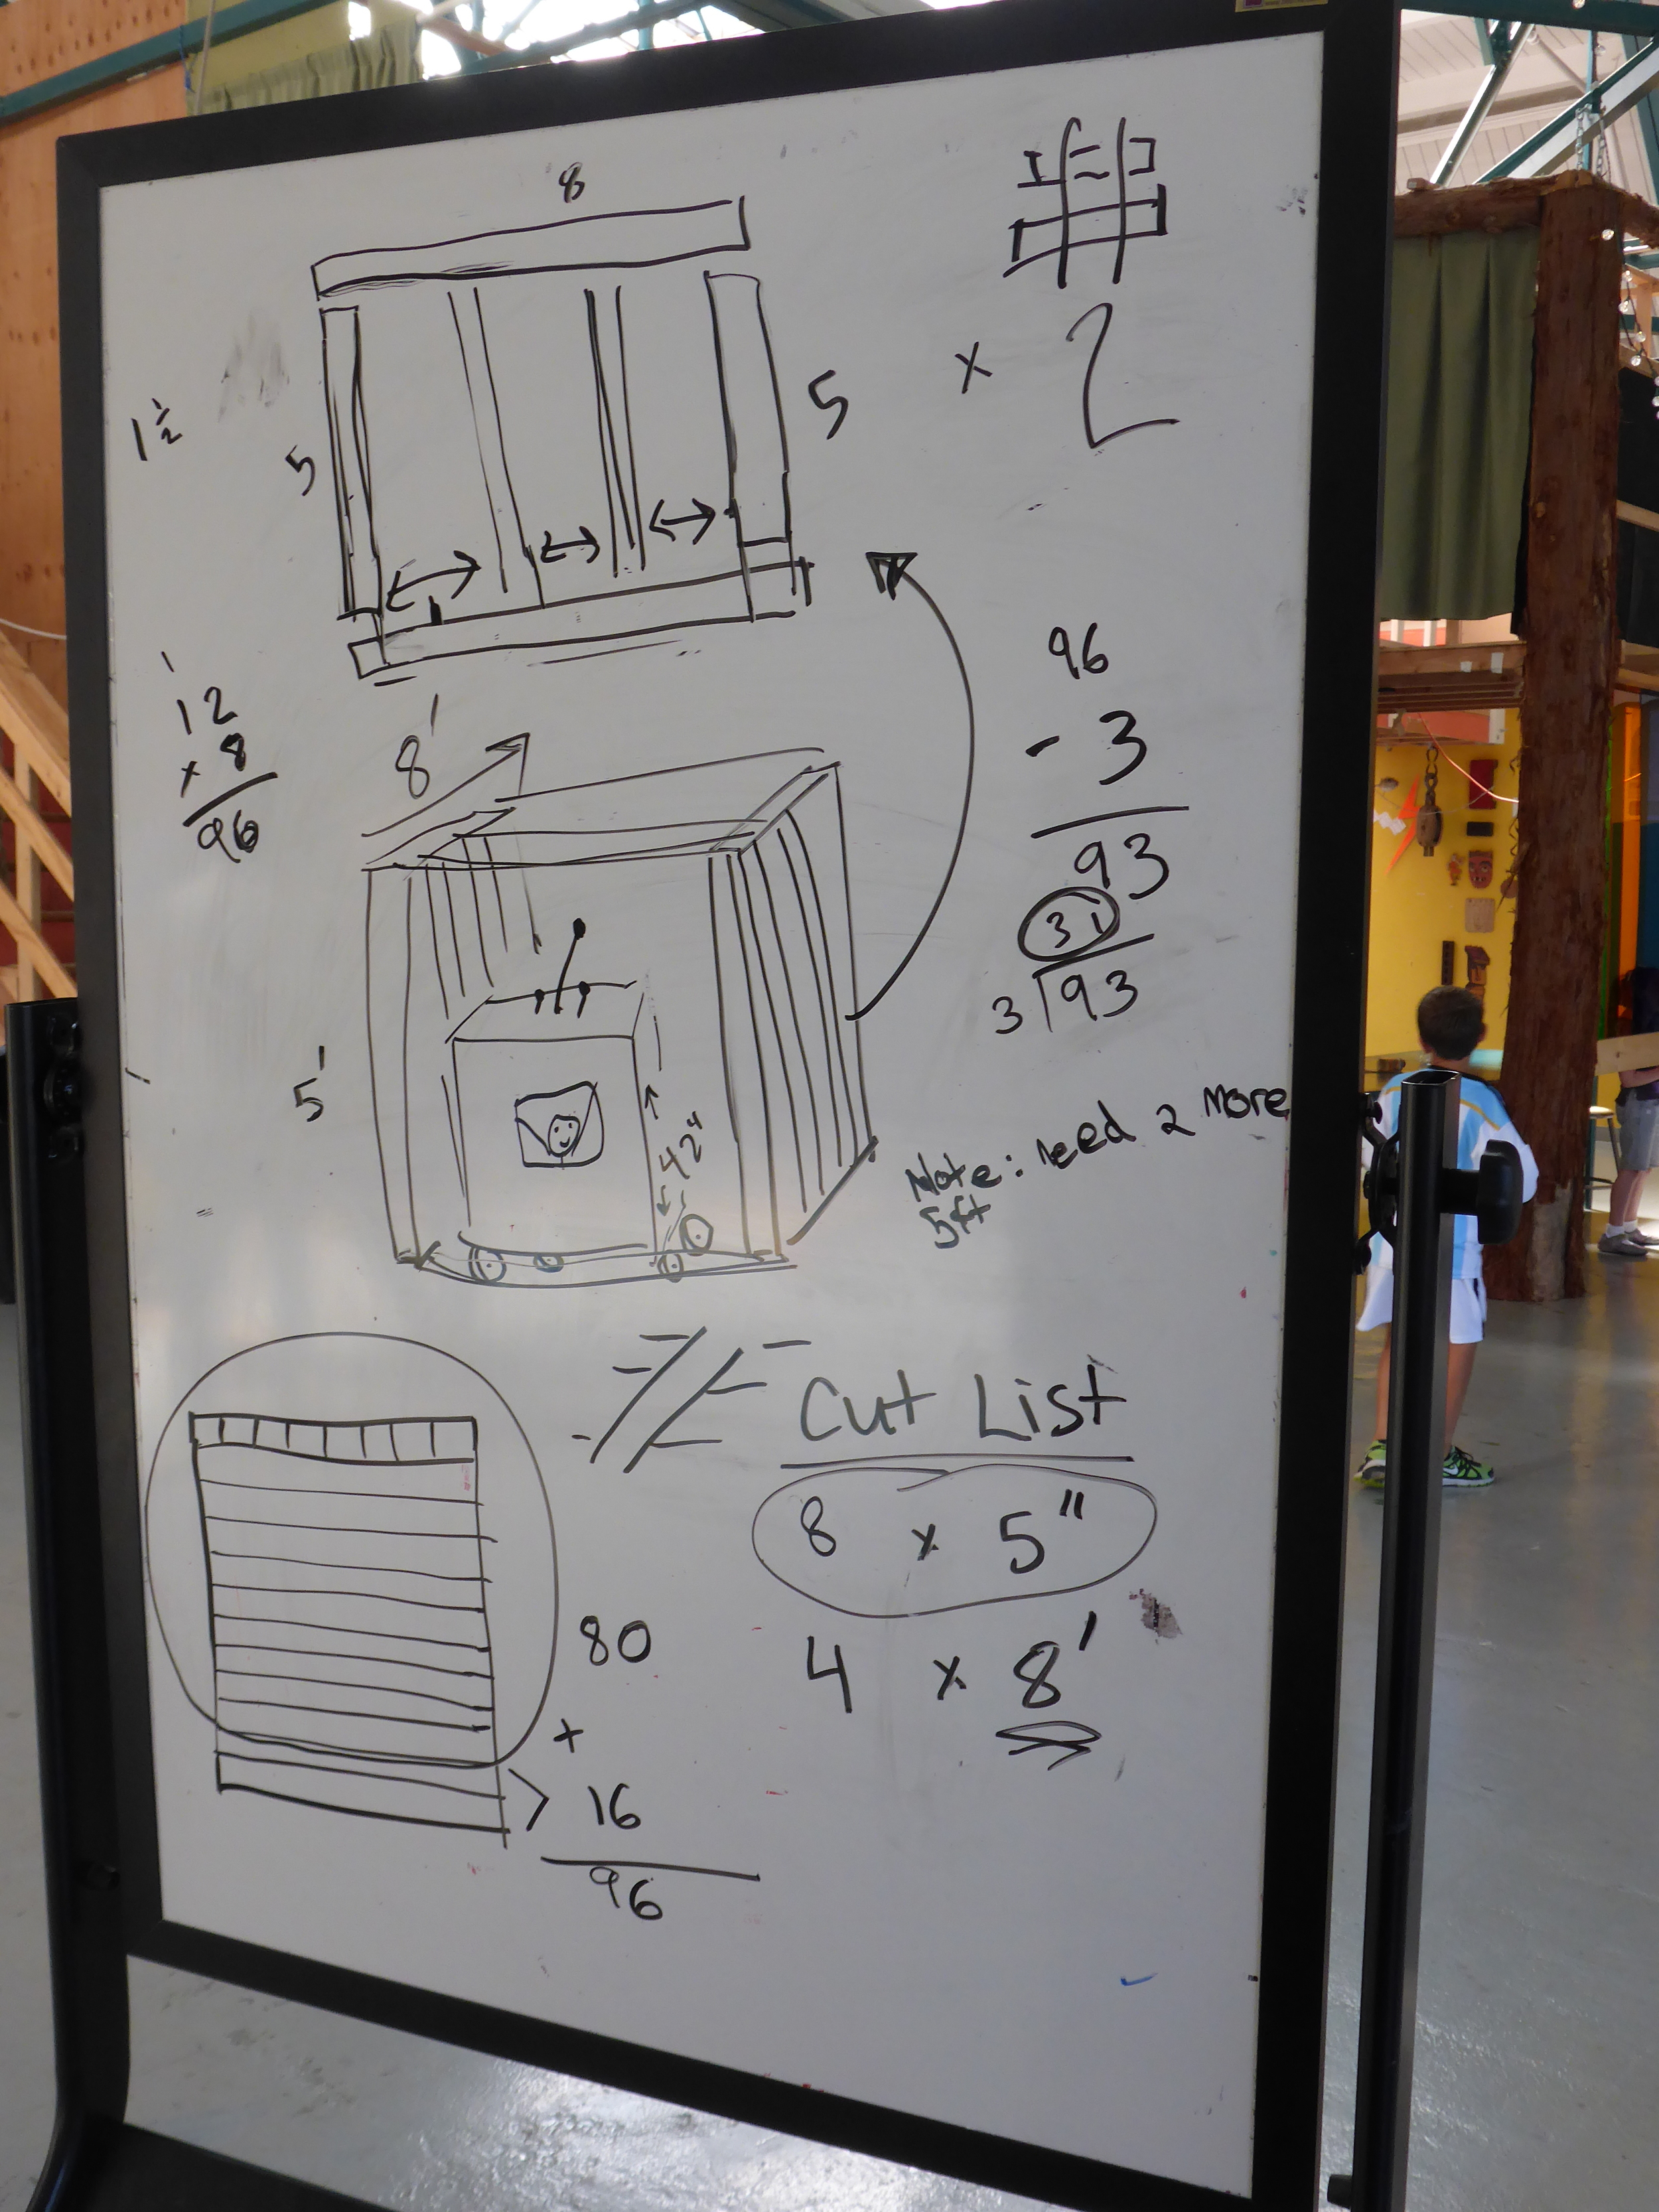 8
1 1/2
5
5
x 2
12
x 8
96
8'
96
- 3
93
31
3 93
5'
42"
Note: need 2 more
5ft
Cut List
8 x 5"
4 x 8'
80
+
16
96